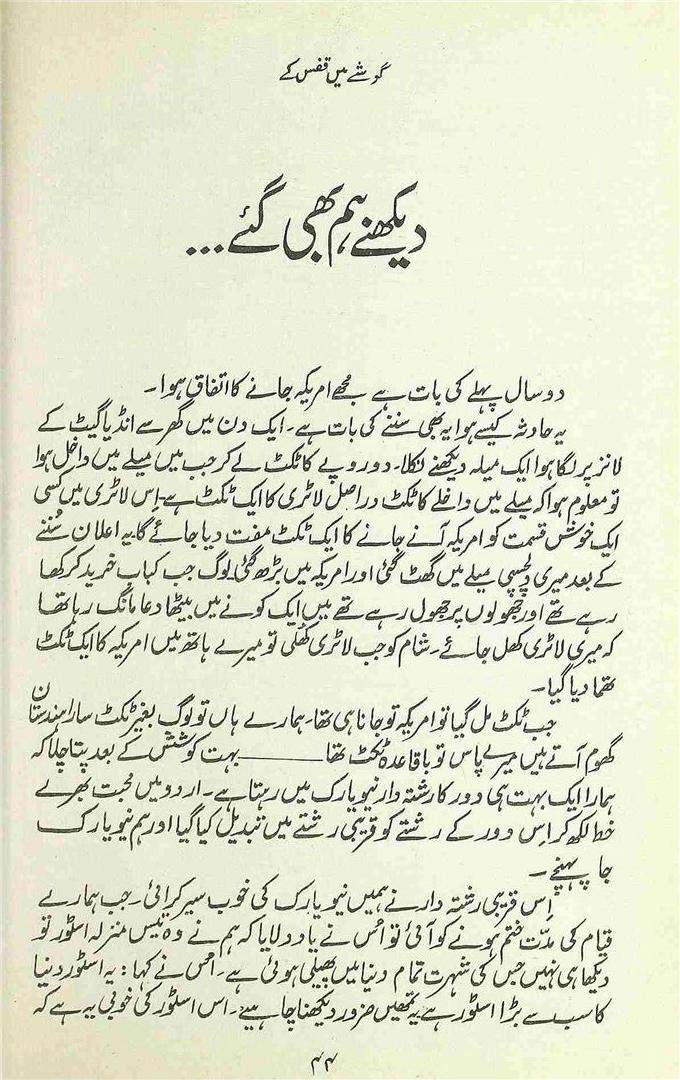 گوشے میں قفس کے
دیکھنے ہم بھی گئے...
دو سال پہلے کی بات ہے مجھے امریکہ جانے کا اتفاق ہوا۔
یہ حادثہ کیسے ہوا یہ بھی سننے کی بات ہے۔ ایک دن میں گھر سے انڈیا گیٹ کے
لانز پر لگا ہوا ایک میلہ دیکھنے نکلا۔ دو روپے کا ٹکٹ لے کر جب میں میلے میں داخل ہوا
تو معلوم ہوا کہ میلے میں داخلے کا ٹکٹ دراصل لاٹری کا ایک ٹکٹ ہے۔ اِس لاٹری میں کسی
ایک خوش قسمت کو امریکہ آنے جانے کا ایک ٹکٹ مفت دیا جائے گا۔ یہ اعلان سُننے
کے بعد میری دلچسپی میلے میں گھٹ گئی اور امریکہ میں بڑھ گئی۔ لوگ جب کباب خرید کر کھا
رہے تھے اور جھولوں پر جھول رہے تھے میں ایک کونے میں بیٹھا دعا مانگ رہا تھا
کہ میری لاٹری کھل جائے۔ شام کو جب لاٹری کھُلی تو میرے ہاتھ میں امریکہ کا ایک ٹکٹ
تھما دیا گیا۔
جب ٹکٹ مل گیا تو امریکہ تو جانا ہی تھا۔ ہمارے ہاں تو لوگ بغیر ٹکٹ سارا ہندستان
گھوم آتے ہیں میرے پاس تو باقاعدہ ٹکٹ تھا ——— بہت کوشش کے بعد پتا چلا کہ
ہمارا ایک بہت ہی دور کا رشتہ دار نیویارک میں رہتا ہے۔ اردو میں محبت بھرے
خط لکھ کر اِس دور کے رشتے کو قریبی رشتے میں تبدیل کیا گیا اور ہم نیویارک
جا پہنچے۔
اِس قریبی رشتہ دار نے ہمیں نیویارک کی خوب سیر کرائی۔ جب ہمارے
قیام کی مدّت ختم ہونے کو آئی تو اُس نے یاد دلایا کہ ہم نے وہ تیس منزلہ اسٹور تو
دیکھا ہی نہیں جس کی شہرت تمام دنیا میں پھیلی ہوئی ہے۔ اُس نے کہا: یہ اسٹور دنیا
کا سب سے بڑا اسٹور ہے یہ تمھیں ضرور دیکھنا چاہیے۔ اس اسٹور کی خوبی یہ ہے کہ
۴۴